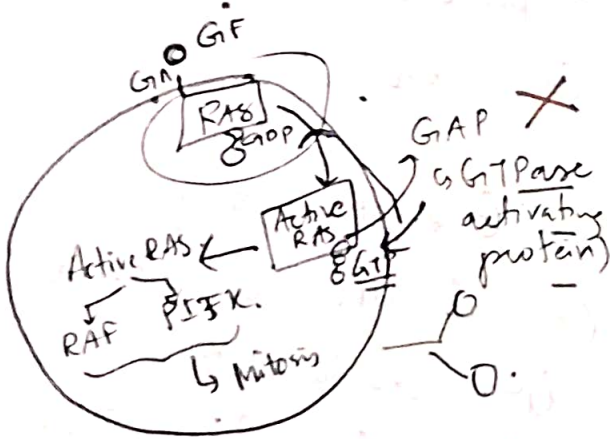 GF
RAS
GDP
GAP
↳ GTPase
activating
protein)
Active
RAS
GTP
Active RAS
RAF
PI3K.
↳ Mitosis